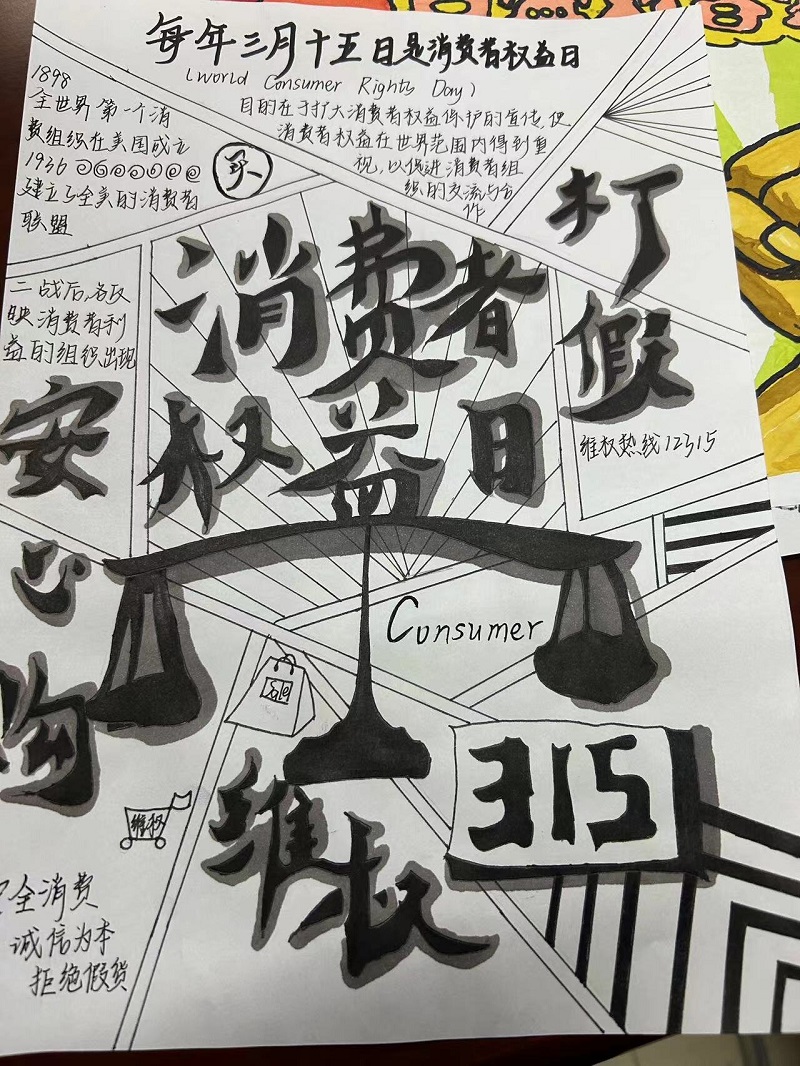 每年三月十五日是消费者权益日
(World Consumer Rights Day)
目的在于扩大消费者权益保护的宣传,使
消费者权益在世界范围内得到重
视,以促进消费者组
织的交流与合
作
1898
全世界第一个消
费组织在美国成立
1936
建立了全美的消费者
联盟
买
打
假
维权热线12315
二战后,各反
映消费者利
益的组织出现
消费者
权益日
安
心
购
Consumer
Sale
315
维权
维权
安全消费
诚信为本
拒绝假货